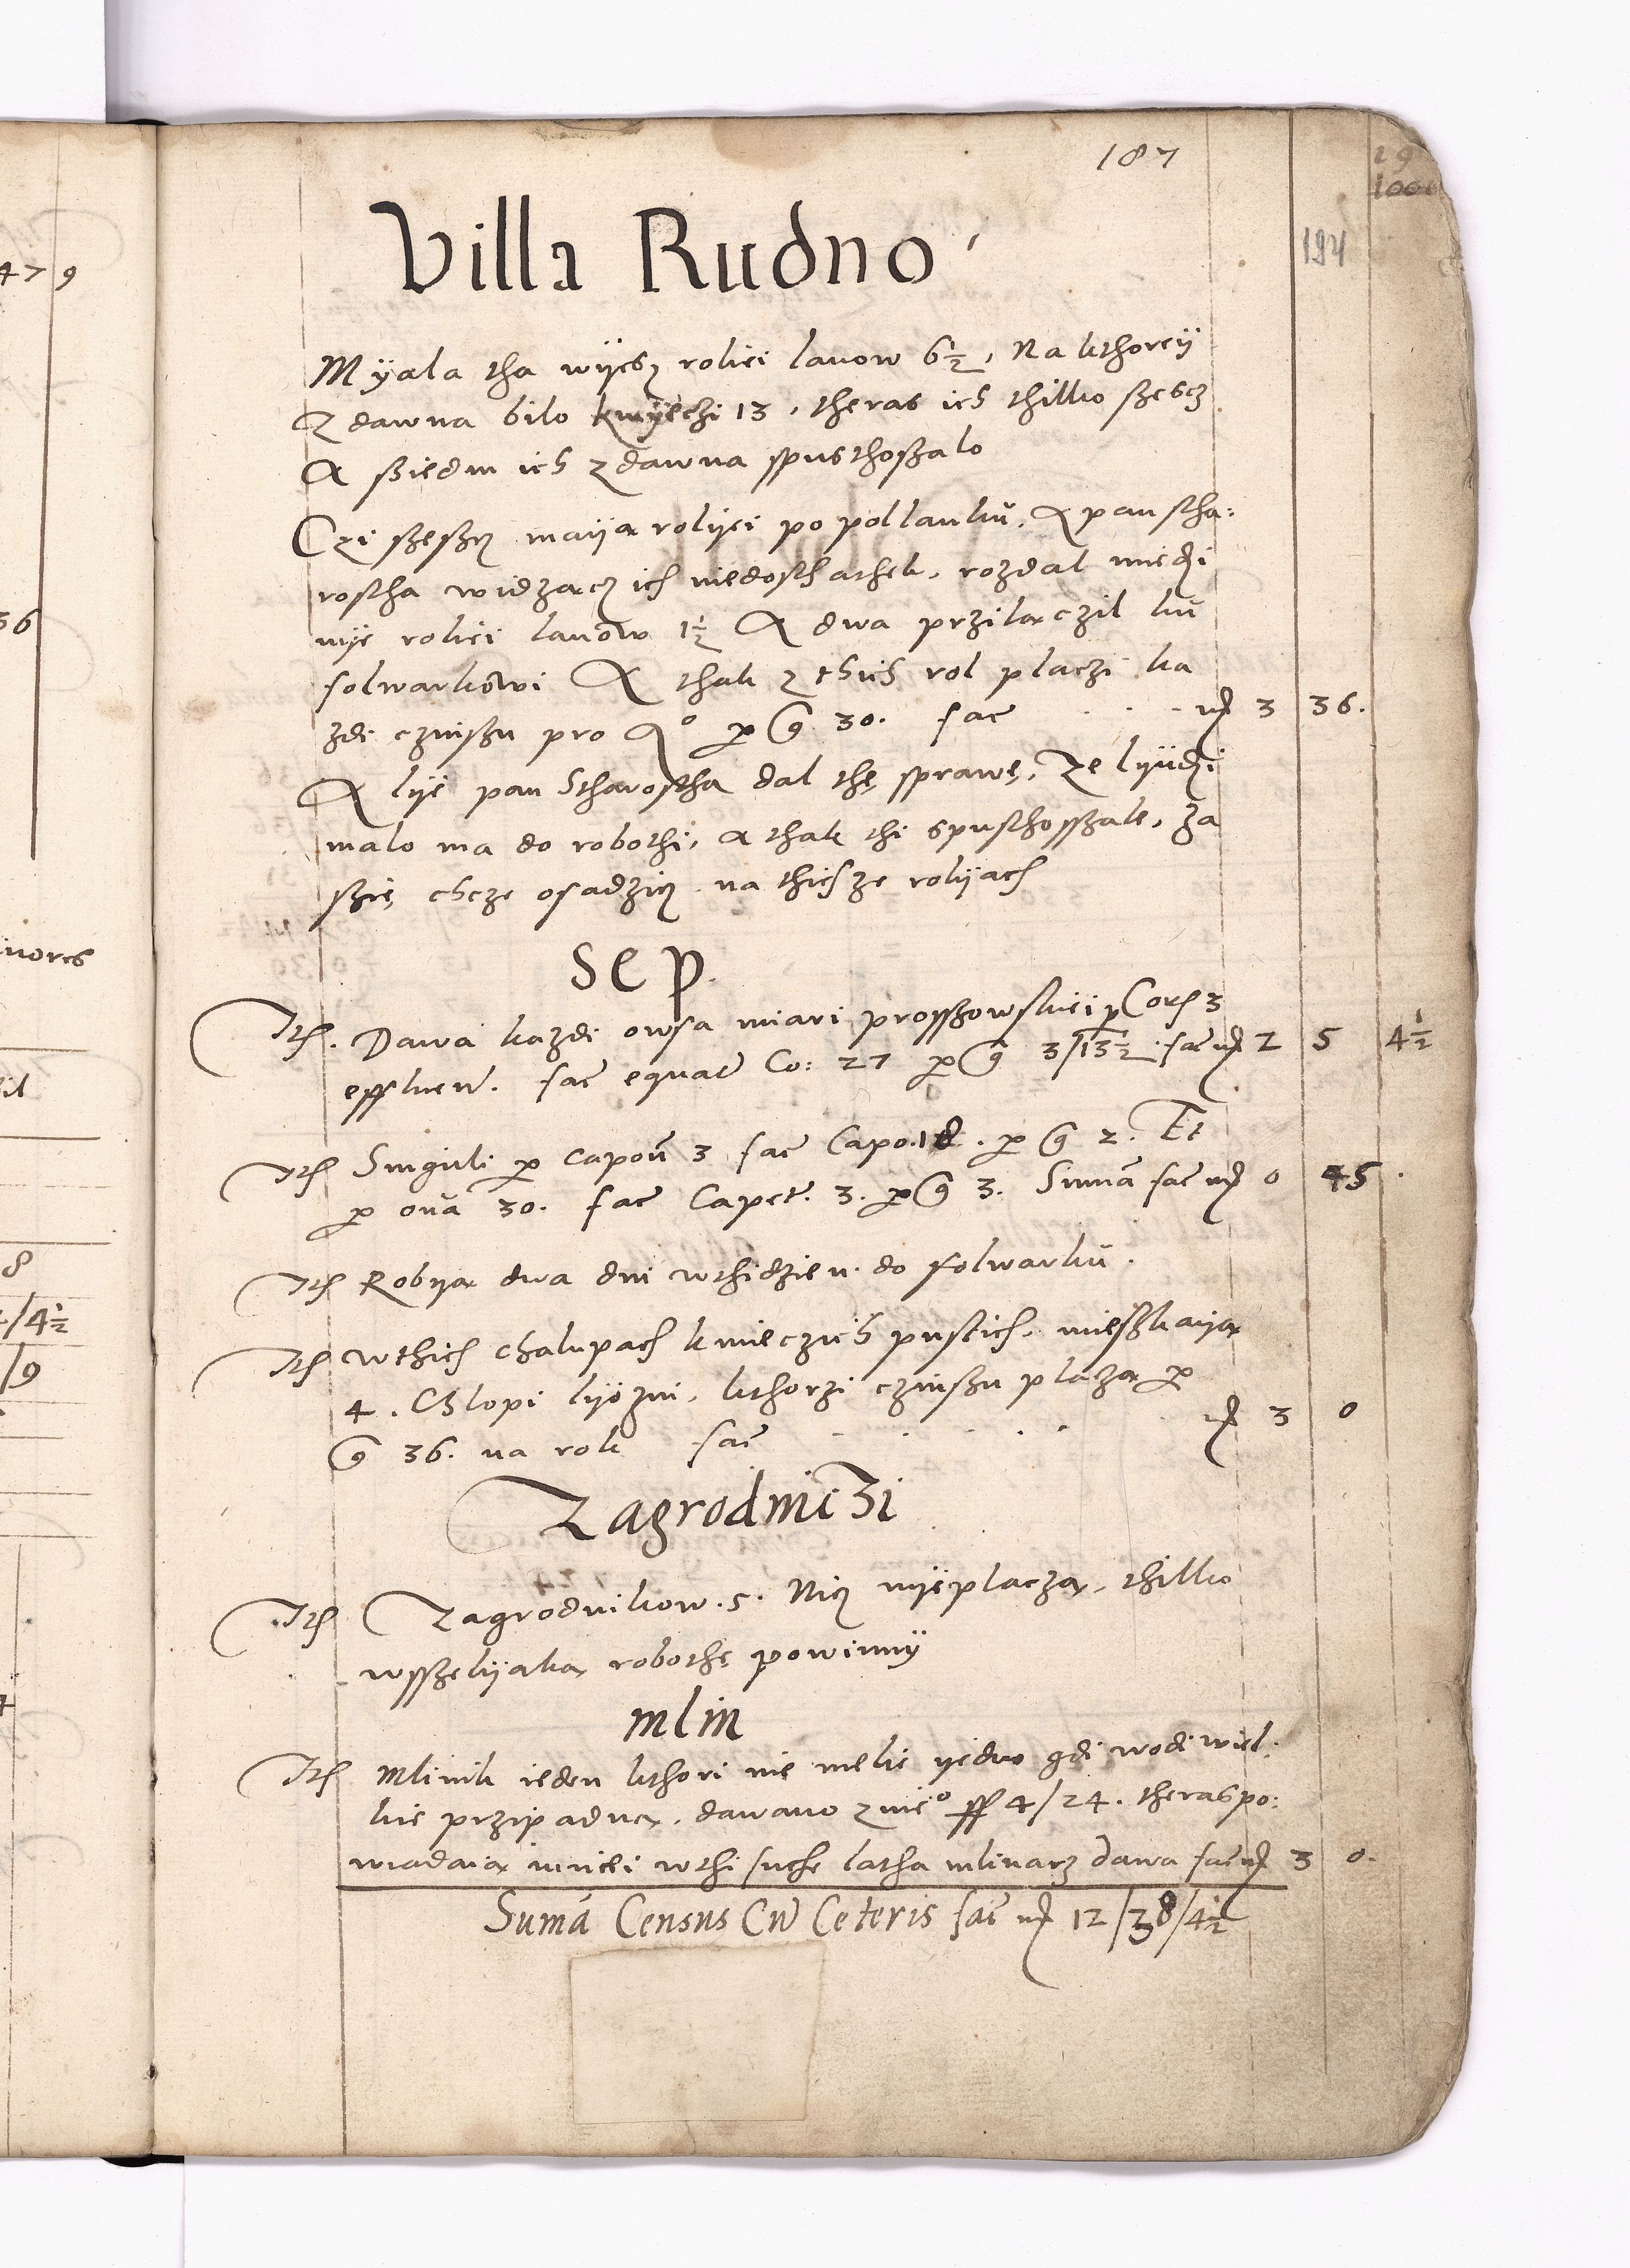 187
194
Villa Rudno
Myala tha wyesz roliei lanow 6½, Na kthorey
Z dawna bilo kmyeczi 13, theras ich thilko szescz
A sziedm ich z dawna spusthoszalo
Czi szeszcz maya rolyei po pollanku, A pan stha:
rostha widzacz ich niedosthathek, rozdal miedzi
nye roliei lanow 1½ A dwa przilaczil ku
folwarkowi A thak z thich rol placzi ka
zdi czinszu pro Ao per g 30. fac mr 3 36.
A lye pan Stharostha dal the sprawe, Ze lyudzi
malo ma do robothi, a thak thi spusthosszale, za
szie chcze osadzicz na thichze rolyach
Sep.
Ith. Dawa kazdi owsa miari prosszowskiei per Cor 3
effluen. fac equat Co: 27 per g 3/13½ fac mr 2 5 4½
Ith Singuli per capon 3 fac Capo. 18. per g 2. Et
per oua 30. fac Capet. 3. per g 3. Summa fac mr 0 45.
Ith Robya dwa dni wthidzien do folwarku.
Ith wthich chalupach kmieczich pustich, mieszkaya
4. Chlopi lyozni, kthorzi czinszu placza per
g 36. na rok fac mr 3 0
Zagrodniczi
Ith Zagrodnikow. 5. Nicz nyeplacza, thilko
wsszelyaka robothe powinny
mlin
Ith Mlinik ieden kthori nie melie yedno gdi wodi wiel:
kie przipadna, dawano znieo ff 4/24. theras po:
wiadaia inniei wthi suche latha mlinarz dawa fac mr 3 0.
Suma Census Cu Ceteris fac mr 12/38/4½